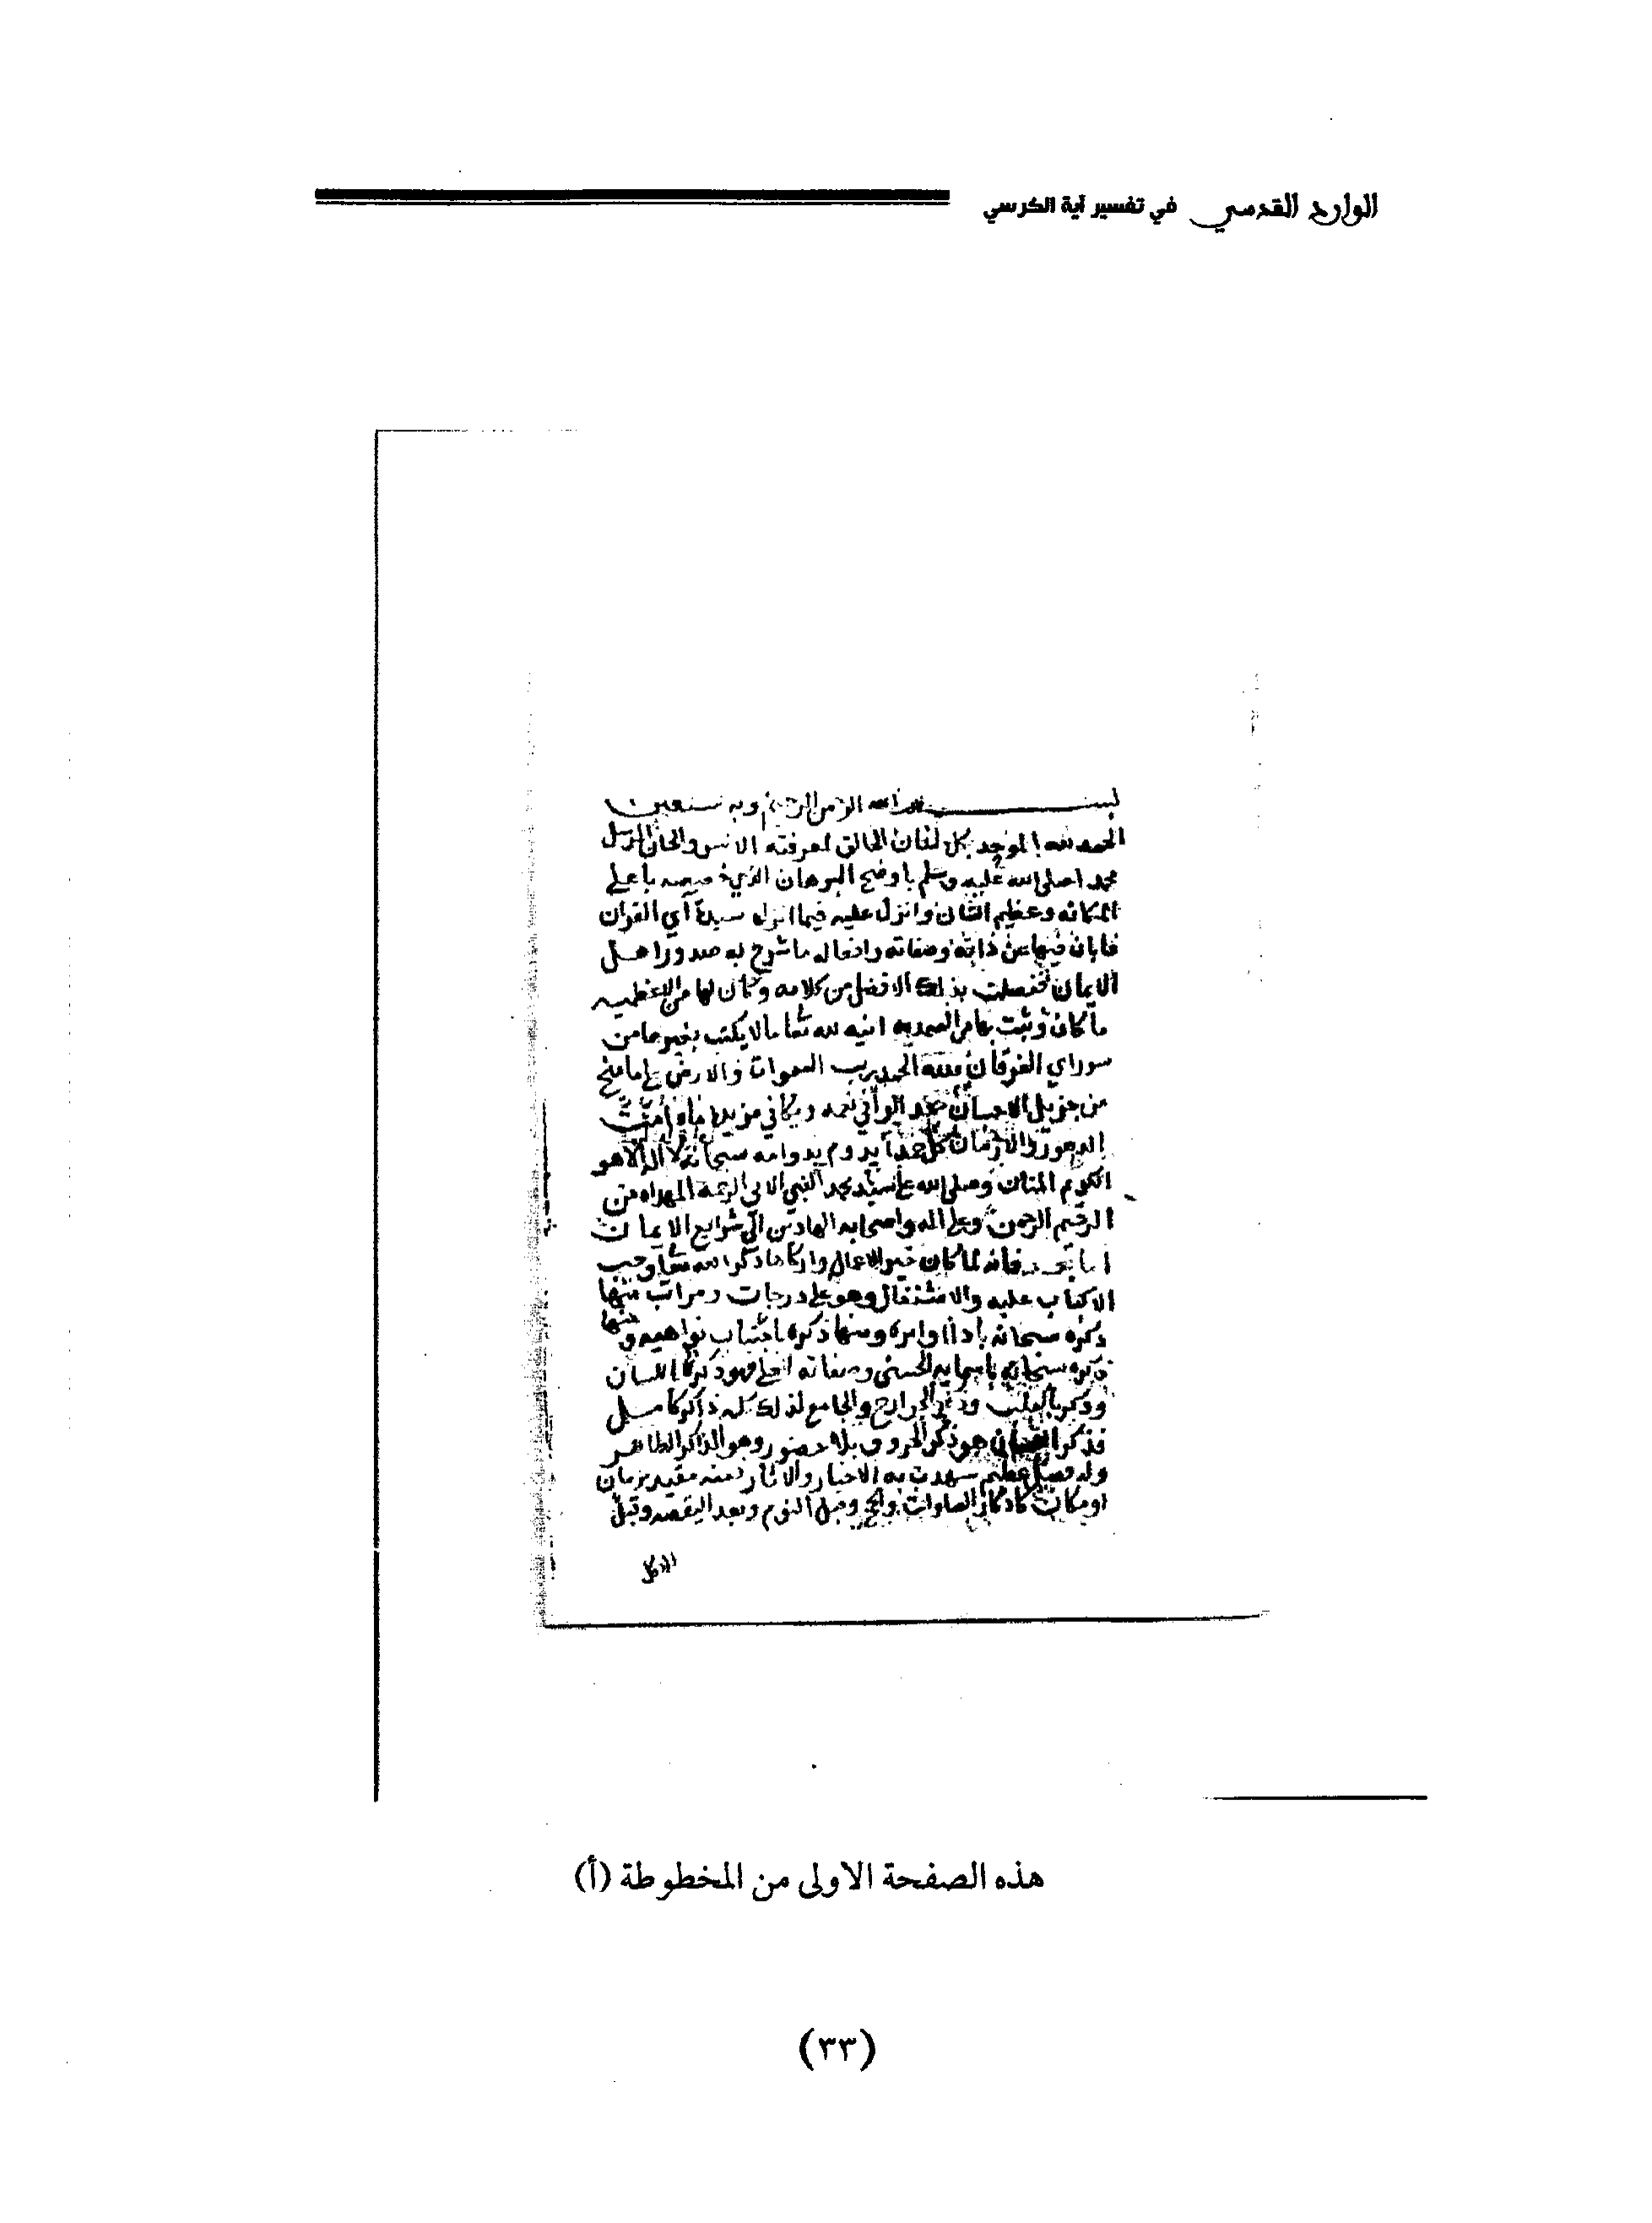 الوارد القدسي في تفسير آية الكرسي
بسم الله الرحمن الرحيم وبه نستعين
الحمد لله الموجد بكل الخالق لمعرفته الانس والجان المرسل
محمدا صلى الله عليه وسلم باوضح البرهان الذي خصصه باعلى
المكانه وعظيم الشان وانزل عليه فيما انزله سيدة آي القران
فابان فيها عن ذاته وصفاته وافعاله ما شرح به صدور اهل
الايمان بذلك الافضل من كلامه وكان لها من العظميه
ما كان وثبت بها من الصمديه
سور آي الفرقان فلله الحمد رب السموات والارض على ما منح
من جزيل الاحسان حمدا يوافي نعمه ويكافي مزيده
الدهور والازمان حمدا يدوم بدوامه سبحانه لا اله الا هو
الكريم المنان وصلى الله على سيدنا محمد النبي الامي الرحمة المهداه من
الرحيم الرحمن وعلى اله واصحابه الهادين الى شرايع الايمان
اما بعد فانه لما كان خير الاعمال وازكاها ذكر الله تعالى وجب
الاكباب عليه والاشتغال وهو على درجات ومراتب منها
ذكره سبحانه باداا وامره ومنها ذكره باجتناب نواهيه ومنها
ذكره سبحانه باسمايه الحسنى وصفاته العلى فهو ذكر باللسان
وذكر بالقلب وذكر بالجوارح والجامع لذلك كله ذاكر كامل
فذكر اللسان هو ذكر الحروف بلا حضور وهو الذكر الظاهر
وله فضل عظيم شهدت به الاخبار والاثار فمنه مقيد بزمان
او مكان كاذكار الصلوات والحج وقبل النوم وبعد اليقضه وقبل
الاكل
هذه الصفحة الاولى من المخطوطة (أ)
(٣٣)